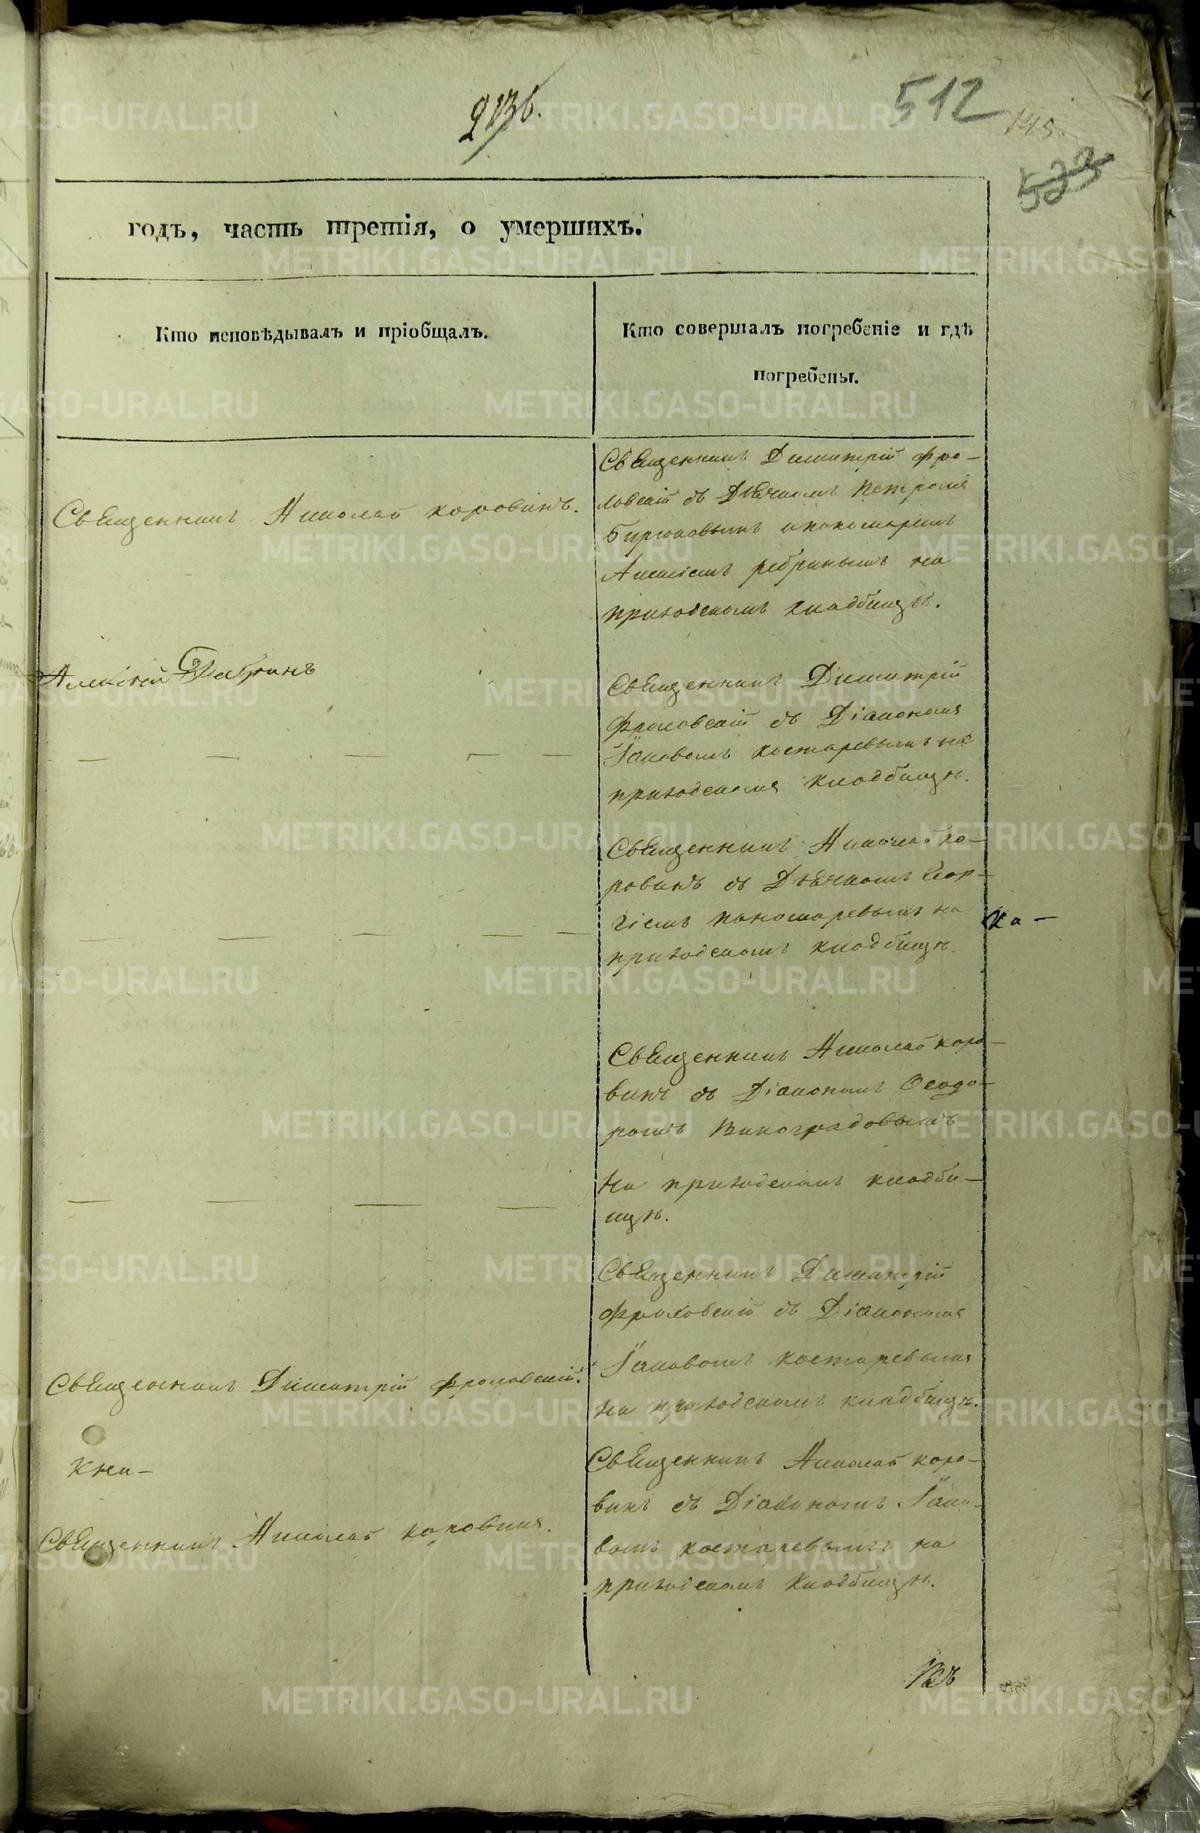 213б.
512
145.
523
годъ, часть третія, о умершихъ.
Кто исповѣдывалъ и пріобщалъ.
Кто совершалъ погребеніе и гдѣ
погребены.
Священникъ Николай Коровинъ.
Священникъ Димитрій Фро-
ловскій съ Дьячкомъ Петромъ
Бирюковымъ и пономаремъ
на
приходскомъ кладбищѣ.
Алексѣй
Священникъ Димитрій
Фроловскій съ Діакономъ
Іаковомъ Костаревымъ на
приходскомъ кладбищѣ.
Священникъ Николай Ко-
ровинъ съ Дьячкомъ Геор-
гіемъ Пономаревымъ на
приходскомъ кладбищѣ.
Ка-
Священникъ Николай Коро-
винъ съ Діакономъ Ѳеодо-
ромъ Виноградовымъ
на приходскомъ кладби-
щѣ.
Священникъ Димитрій
Фроловскій съ Діакономъ
Іаковомъ Костаревымъ
на приходскомъ кладбищѣ.
Священникъ Димитрій Фроловскій.
Кни-
Священникъ Николай Коровинъ.
Священникъ Николай Коро-
винъ съ Діакономъ Іако-
вомъ Костаревымъ на
приходскомъ кладбищѣ.
METRIKI.GASO-URAL.RU